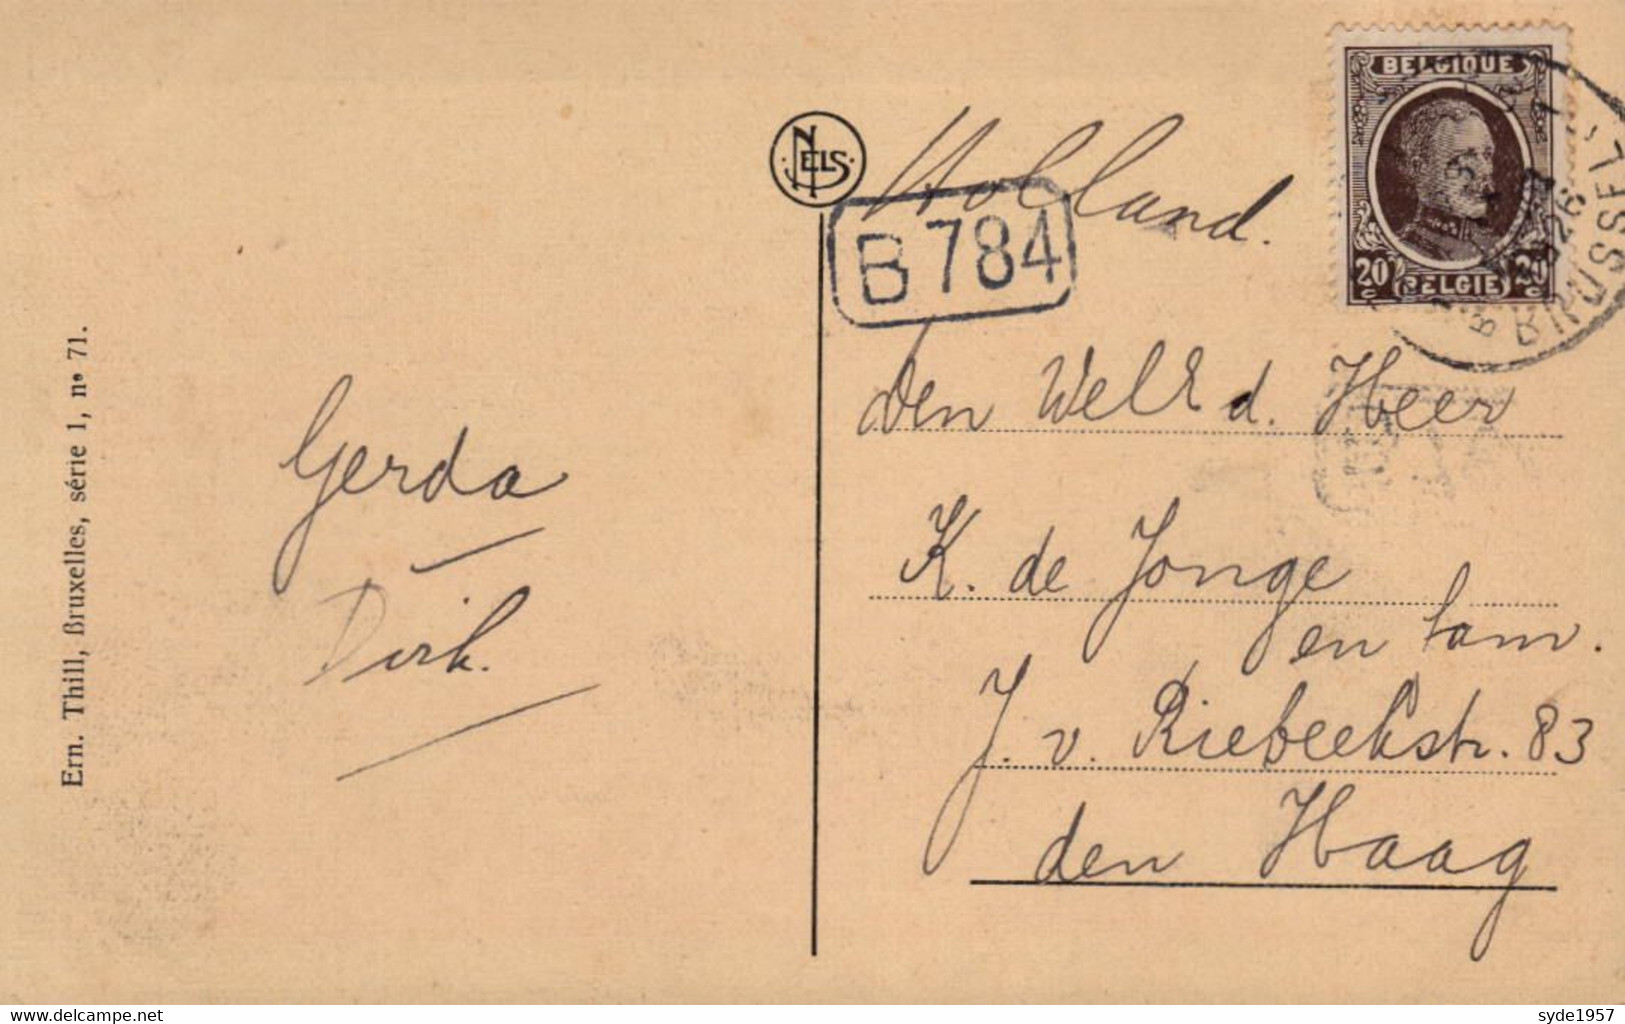 Ern. Thill, Bruxelles, série 1, nº 71.
Gerda
Dirk.
NELS
Holland.
B 784
BELGIQUE
20c BELGIE 20c
1926
BRUSSEL
den WelEd. Heer
K. de Jonge
en fam.
J. v. Riebeekstr. 83
den Haag
delcampe.net
syde1957